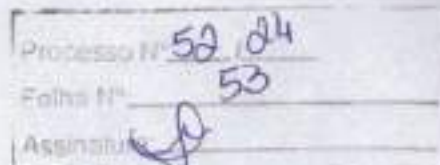 Processo Nº 52 / 24
Folha Nº 53
Assinatura